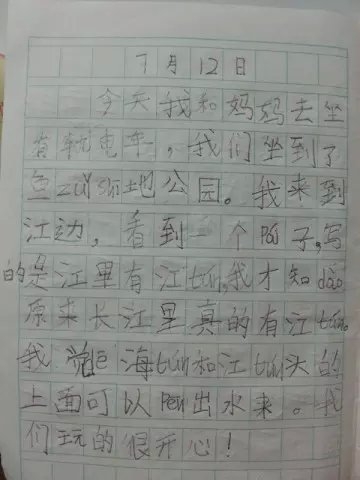 7月12日
今天我和妈妈去坐
有轨电车，我们坐到了
鱼zuǐ shī地公园。我来到
江边，看到一个pái子,写
的是江里有江tún,我才知dào
原来长江里真的有江tún。
我觉de海tún和江tún头的
上面可以pēn出水来。我
们玩的很开心！